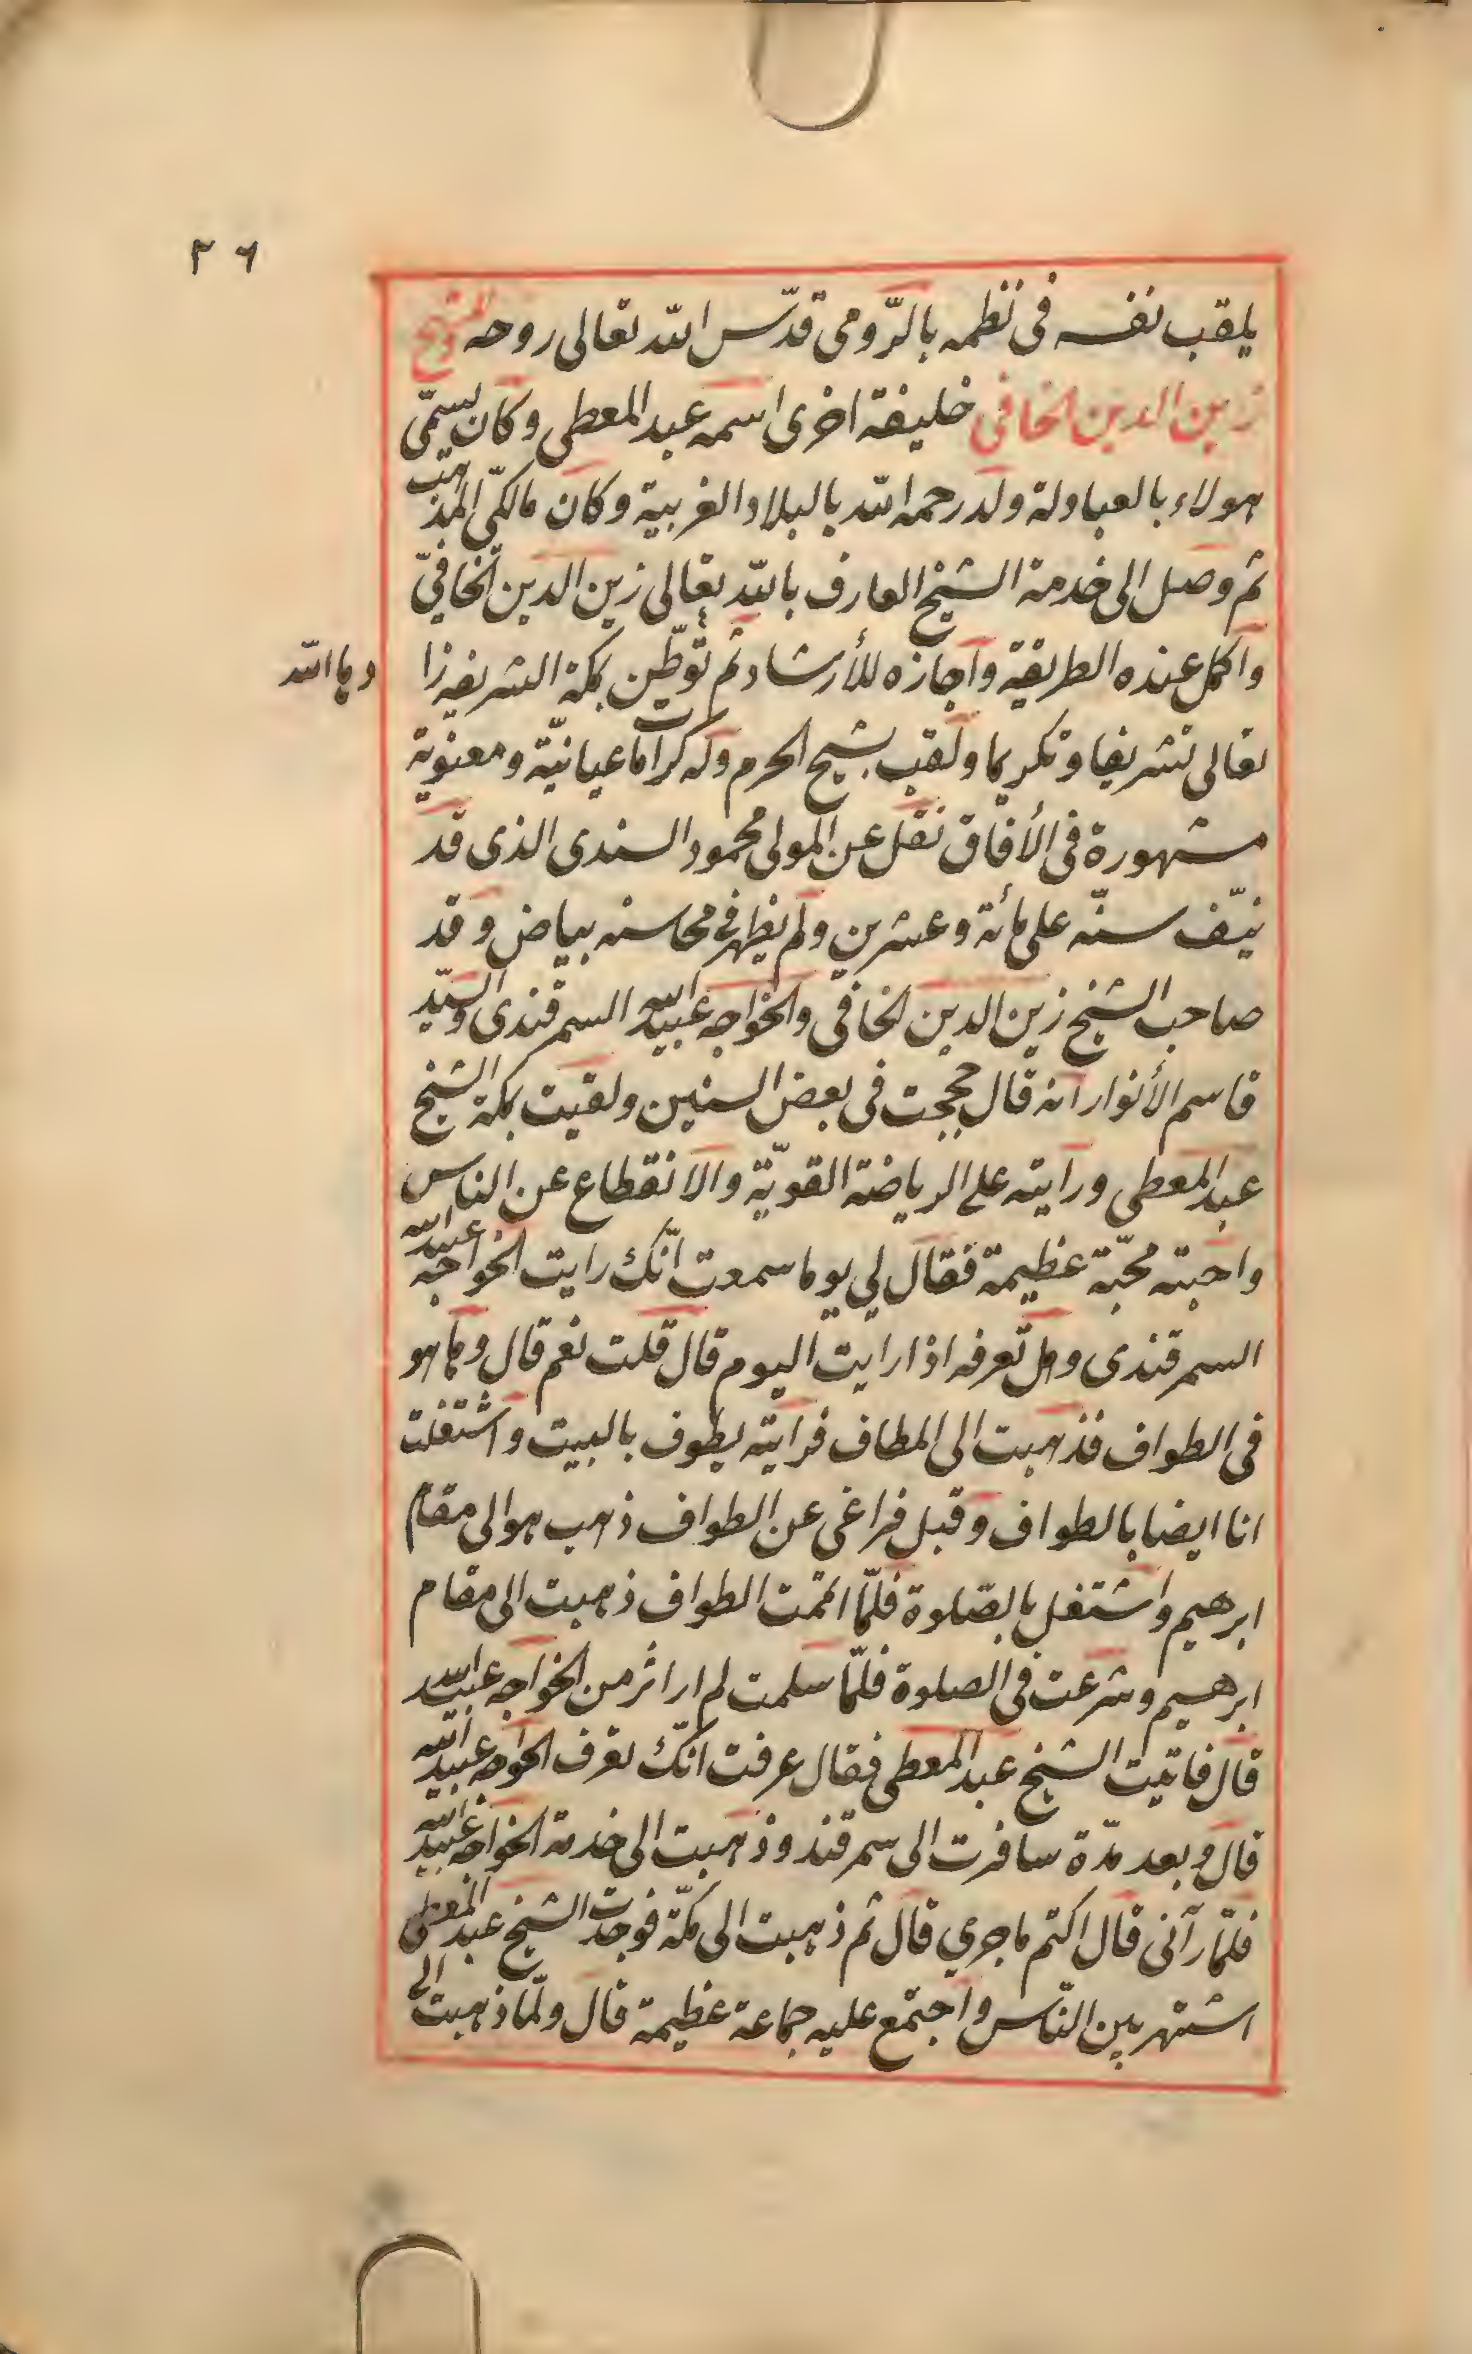 ٢٦
يلقب نفسه فى نظمه بالرّومى قدّس الله تعالى روحه للشيخ
زين الدين الخافى خليفة اخرى اسمه عبد المعطى وكان يسمّى
هولاء بالعبادلة ولد رحمه الله بالبلاد الغربية وكان مالكىّ المذهب
ثم وصل الى خدمة الشيخ العارف بالله تعالى زين الدين الخافىّ
واكمل عنده الطريقة واجازه للأرشاد ثم توطّن بمكة الشريفه زا
دها الله
تعالى تشريفا وتكريما ولقب بشيخ الحرم وله كرامات عيانيّة ومعنويّة
مشهورة فى الأفاق نقل عن المولى محمود السندى الذى قد
نيّف سنّه على مائة وعشرين ولم يظهر فى محاسنه بياض وقد
صاحب الشيخ زين الدين الخافى والخواجه عبيد الله السمرقندى والسيّد
قاسم الأنوار انه قال حججت فى بعض السنين ولقيت بمكة الشيخ
عبد المعطى ورايته على الرياضة القويّة والانقطاع عن الناس
واحبته محبّة عظيمة فقال لي يوما سمعت انّك رايت الخواجه عبيد الله
السمرقندى وهل تعرفه اذا رايت اليوم قال قلت نعم قال وها هو
فى الطواف فذهبت الى المطاف فرايته يطوف بالبيت واشتغلت
انا ايضا بالطواف وقبل فراغى عن الطواف ذهب هو الى مقام
ابرهيم واشتغل بالصّلوة فلمّا اتممت الطواف ذهبت الى مقام
ابرهيم وشرعت فى الصلوة فلمّا سلمت لم ار اثر من الخواجه عبيد الله
قال فاتيت الشيخ عبد المعطى فقال عرفت انّك تعرف الخواجه عبيد الله
قال وبعد مدّة سافرت الى سمرقند وذهبت الى خدمة الخواجه عبيد الله
فلمّا رآنى قال اكتم ما جري قال ثم ذهبت الى مكّة فوجدت الشيخ عبد المعطى
اشتهر بين النّاس واجتمع عليه جماعة عظيمة قال ولمّا ذهبت الى